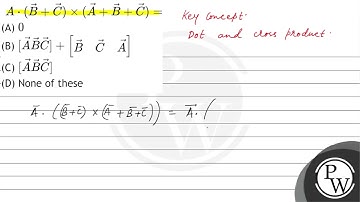 A⃗ · (B⃗ + C⃗) × (A⃗ + B⃗ + C⃗) =
(A) 0
(B) [A⃗B⃗C⃗] + [B⃗ C⃗ A⃗]
(C) [A⃗B⃗C⃗]
(D) None of these
Key Concept.
Dot and cross product.
A⃗ · ((B⃗+C⃗) × (A⃗ + B⃗+C⃗)) = A⃗ · (
PW